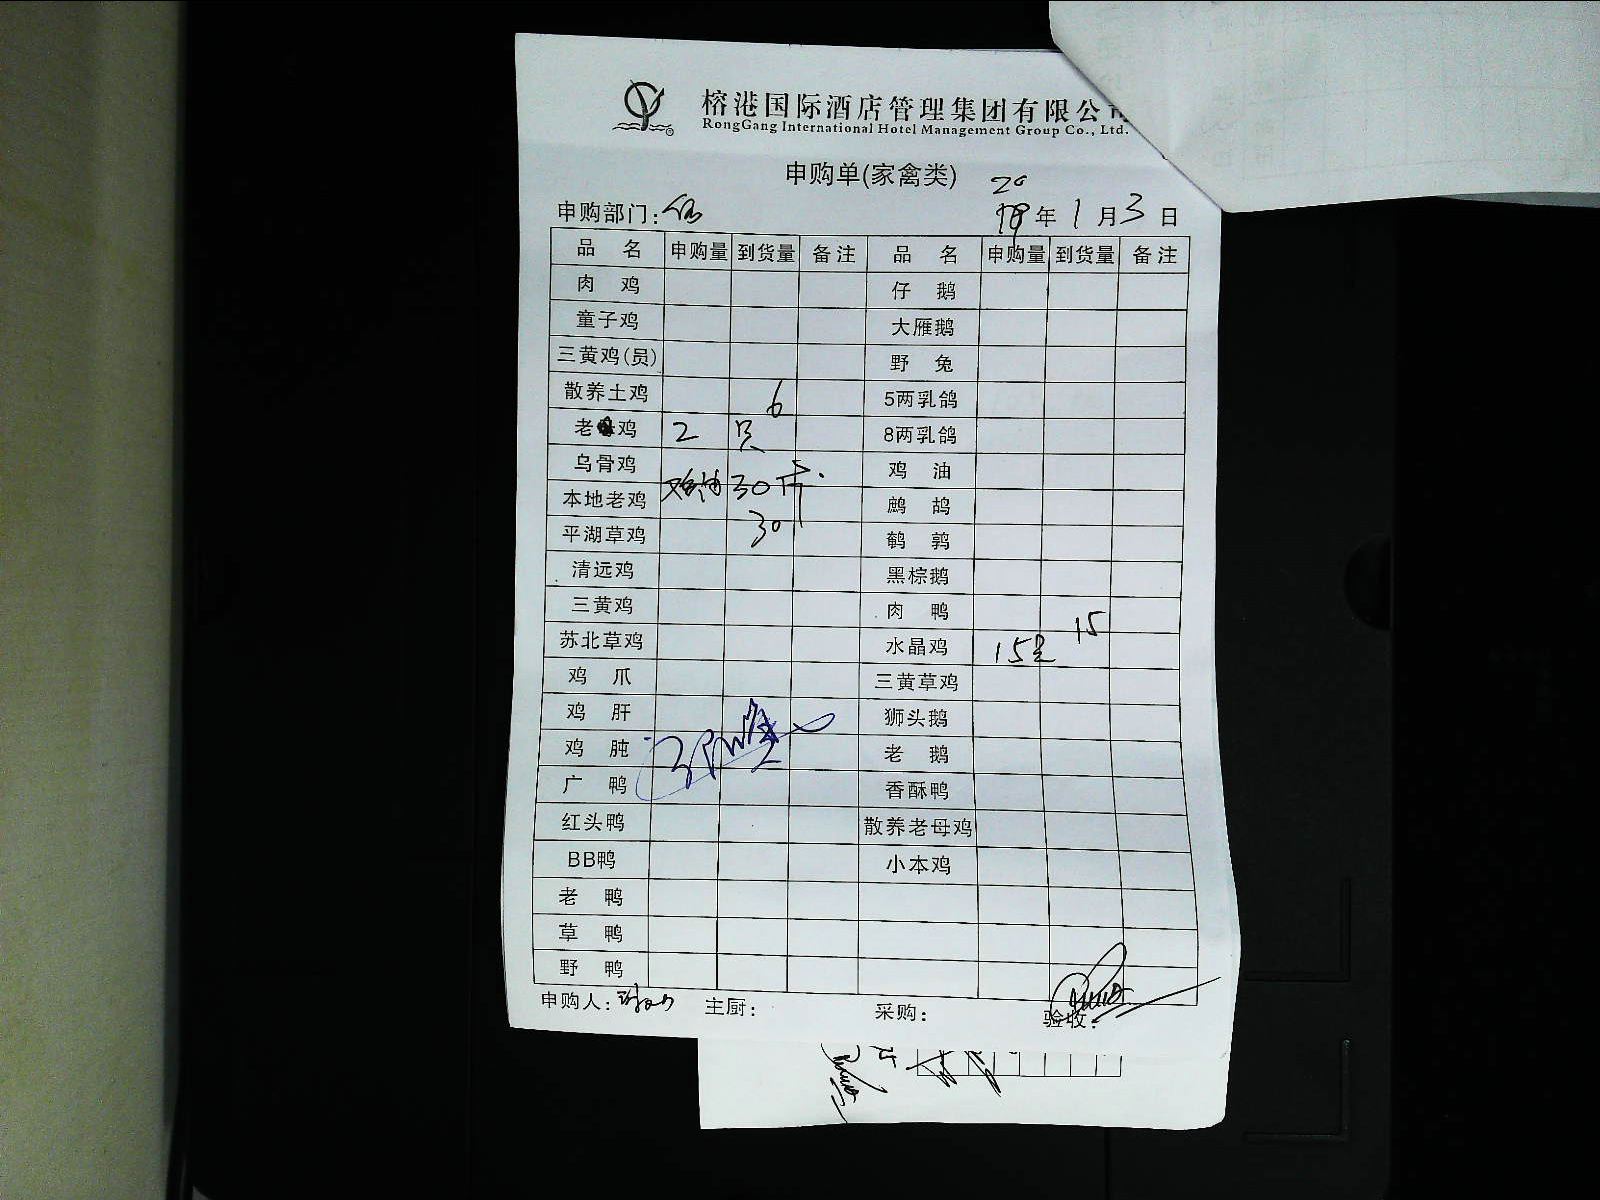 榕港国际酒店管理集团有限公
RongGang International Hotel Management Group Co., Ltd.
申购单(家禽类)
20
申购部门: 年 1 月 3 日
品 名 申购量 到货量 备注 品 名 申购量 到货量 备注
肉 鸡 仔 鹅
童子鸡 大雁鹅
三黄鸡(员) 野 兔
散养土鸡 6 5两乳鸽
老 鸡 2 只 8两乳鸽
乌骨鸡 鸡 油
鸡油 30斤.
本地老鸡 鹧 鸪
平湖草鸡 30 鹌 鹑
清远鸡 黑棕鹅
三黄鸡 肉 鸭
苏北草鸡 水晶鸡 15只 15
鸡 爪 三黄草鸡
鸡 肝 狮头鹅
鸡 肫 老 鹅
广 鸭 香酥鸭
红头鸭 散养老母鸡
BB鸭 小本鸡
老 鸭
草 鸭
野 鸭
申购人: 主厨: 采购: 验收: